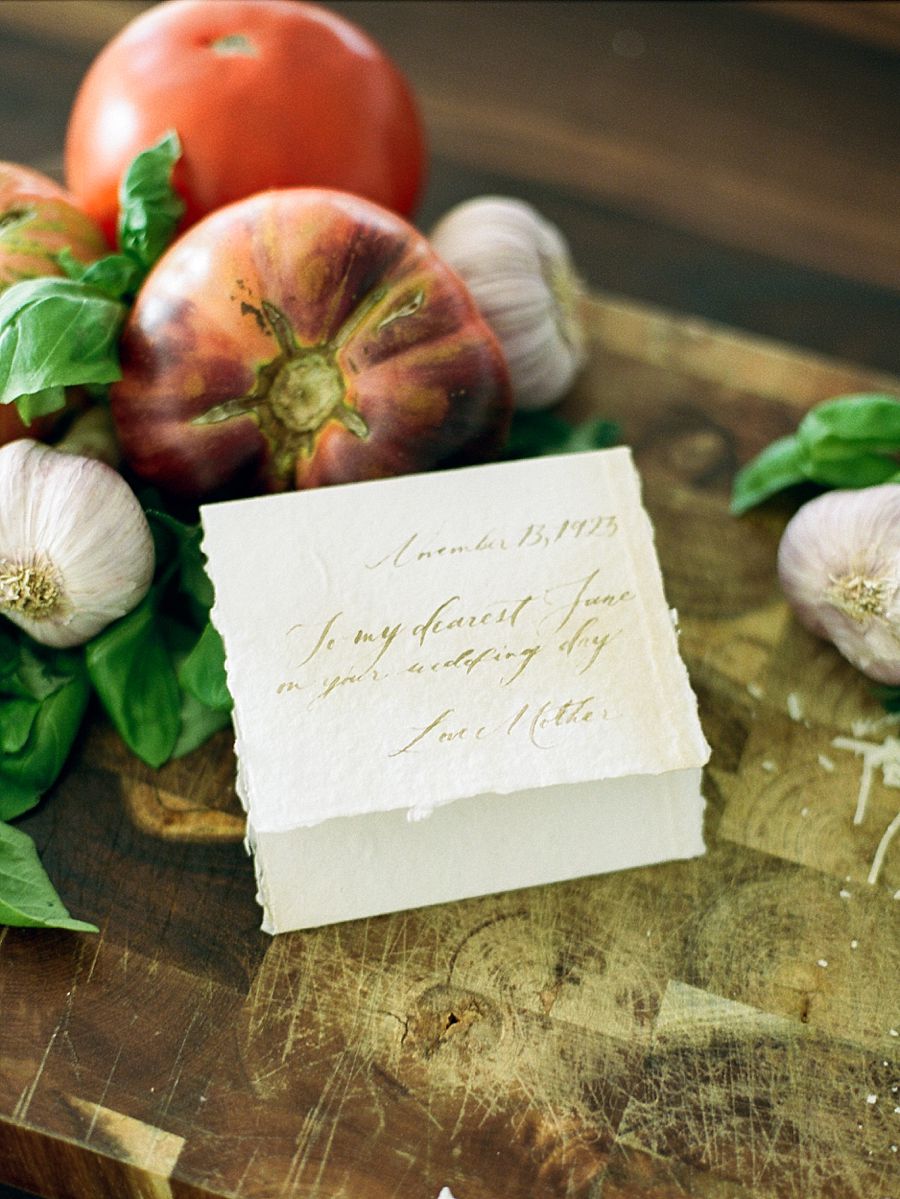 November 13, 1923
To my dearest June
on your wedding day
Love Mother